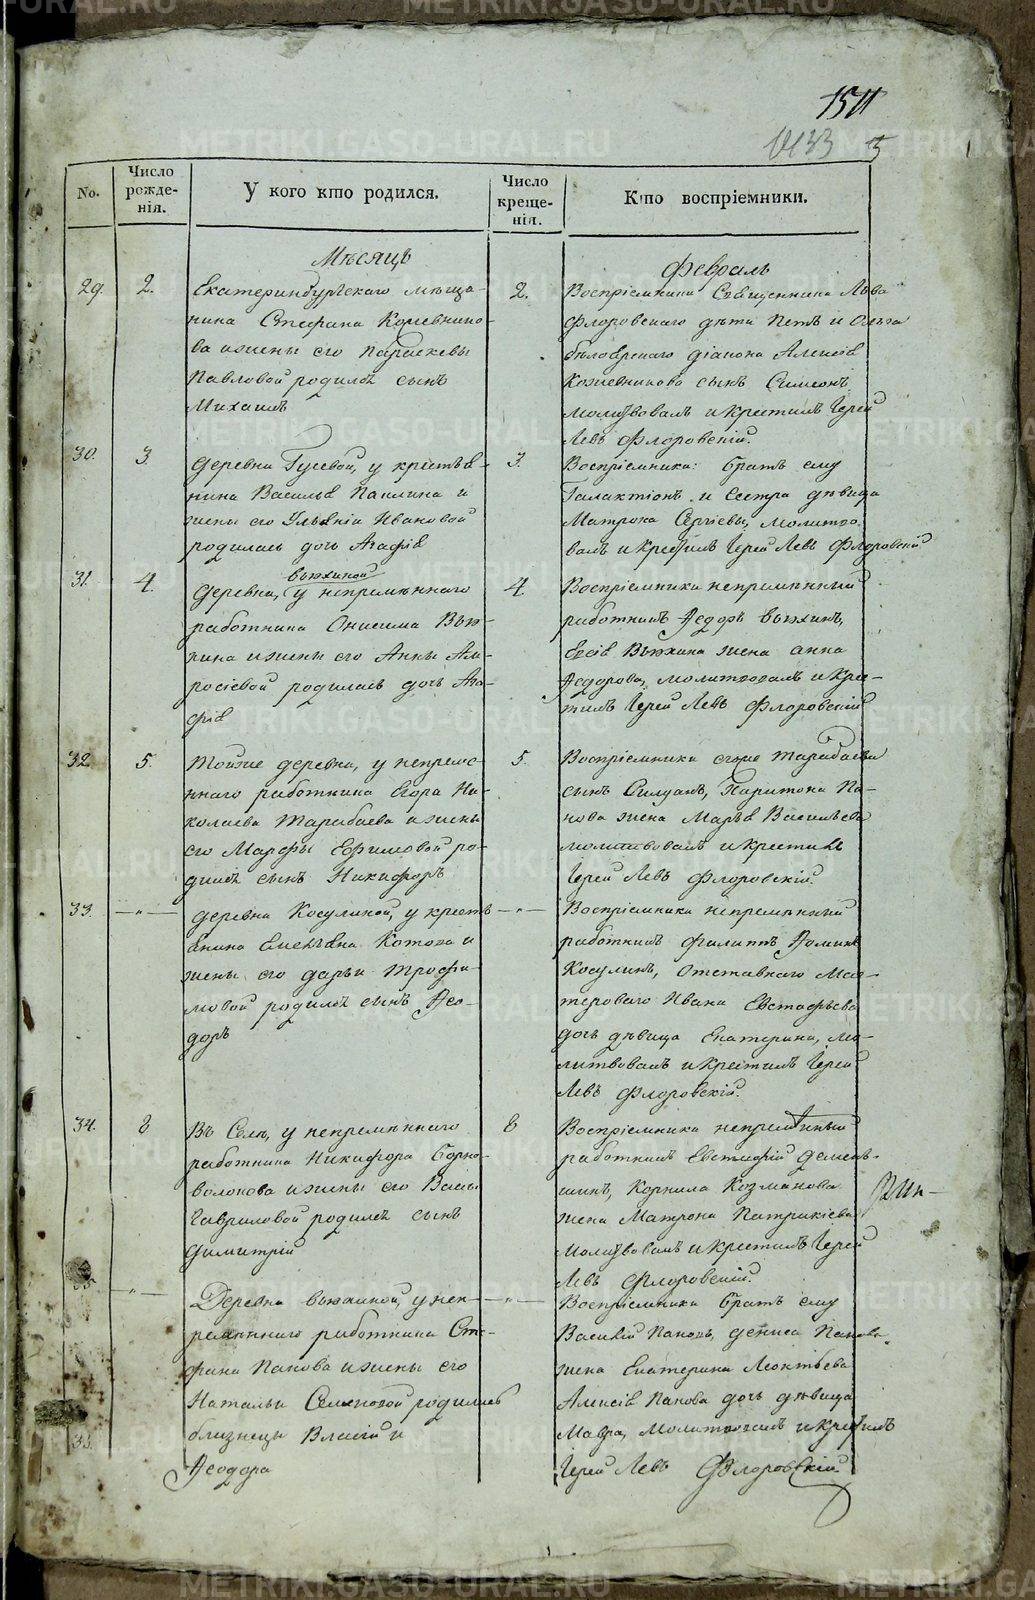 1511
1033 5
No.
Число рожде-нія.
У кого кто родился.
Число креще-нія.
Кто воспріемники.
Мѣсяцъ
Февраль
29.
2.
Екатеринбургскаго мѣща-
нина Стефана Кожевнико-
ва и жены его Параскевы
Павловой родился сынъ
Михаилъ
2.
Воспріемники Священника Льва
Флоровскаго дѣти Петъ и Ольга
діакона Алексія
Кожевникова сынъ Симеонъ
молитвовалъ и крестилъ Іерей
Левъ Флоровскій.
30.
3.
деревни Гусевой, у крестья-
нина Василья Паклина и
жены его Ивановой
родилась дочь Агафія
3.
Воспріемники: братъ ему
Галактіонъ и сестра дѣвица
Матрона Сергіевы, молитво
валъ и крестилъ Іерей Левъ Флоровскій
31.
4.
Вьюхиной
деревни, у непремѣннаго
работника Онисима Вью-
хина и жены его Анны Ам-
росіевой родилась дочь Ага-
фія
4.
Воспріемники непремѣнный
работникъ Ѳедоръ Вьюхинъ,
Вьюхина жена Анна
Ѳедорова, молитвовалъ и крес-
тилъ Іерей Левъ Флоровскій
32.
5.
Тойже деревни, у непремѣ-
ннаго работника Егора Ни-
колаева Тарабаева и жены
его Марфы Ефимовой ро-
дился сынъ Никифоръ
5.
Воспріемники Тарабаева
сынъ Силуанъ, Харитона Па-
нова жена Марья Васильева
молитвовалъ и крестилъ
Іерей Левъ Флоровскій.
33.
— " —
деревни Косулиной, у кресть
янина Емельяна Котова и
жены его Дарьи Трофи-
мовой родился сынъ Ѳео-
доръ
— " —
Воспріемники непремѣнный
работникъ Филиппъ Ѳоминъ
Косулинъ, отставнаго Мас-
тероваго Ивана Евстафьева
дочь дѣвица Екатерина, мо-
литвовалъ и крестилъ Іерей
Левъ Флоровскій.
34.
6
Въ селѣ, у непремѣннаго
работника Никифора Борно-
волокова и жены его Вассы
Гавриловой родился сынъ
Димитрій
6
Воспріемники непремѣнный
работникъ Евстафій Демень-
шинъ, Корнила Козманова
жена Матрона Патрикіева
молитвовалъ и крестилъ Іерей
Левъ Флоровскій.
35.
— " —
Деревни Вьюхиной, у неп-
ремѣннаго работника Сте-
фана Панова и жены его
Натальи Семеновой родились
близнецы Власій и
Ѳеодора
— " —
Воспріемники братъ ему
Василій Пановъ, Дениса Панова
жена Екатерина Леонтьева
Алексія Панова дочь дѣвица
Мавра, молитвовалъ и крестилъ
Іерей Левъ Флоровскій.
METRIKI.GASO-URAL.RU